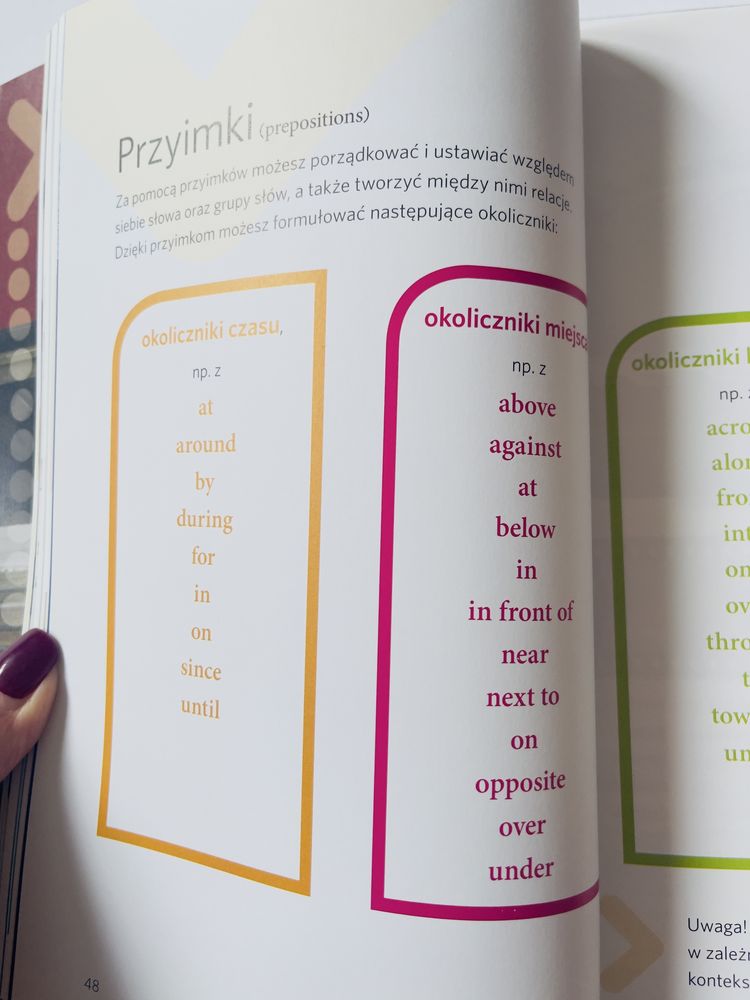 Przyimki (prepositions)
Za pomocą przyimków możesz porządkować i ustawiać względem
siebie słowa oraz grupy słów, a także tworzyć między nimi relacje.
Dzięki przyimkom możesz formułować następujące okoliczniki:
okoliczniki czasu,
np. z
at
around
by
during
for
in
on
since
until
okoliczniki miejsca
np. z
above
against
at
below
in
in front of
near
next to
on
opposite
over
under
okoliczniki
np.
Uwaga!
w
48